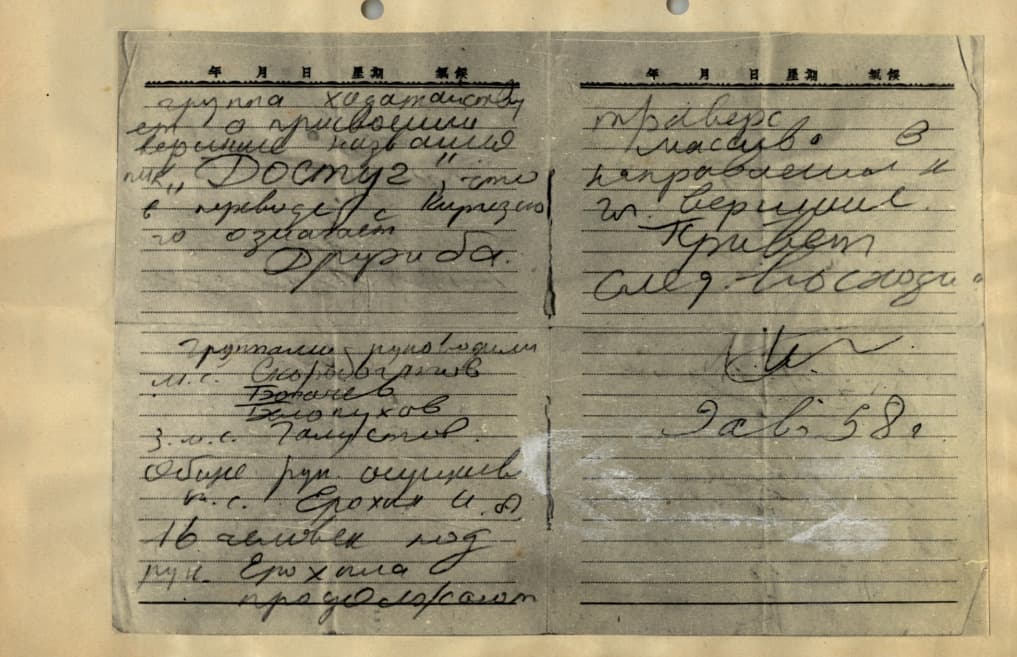 年 月 日 星期 氣候
группа ходатайству
ет о присвоении
вершине названия
пик „Достуг", что
в переводе с Киргизско
го означает
Дружба.
группами руководили
м.с. Скоробогатов
Белопухов
з.м.с. Галустов.
Общее рук. осуществ
м.с. Ерохин И.
16 человек под
рук. Ерохина
продолжают
年 月 日 星期 氣候
траверс
массива в
направлении к
гл. вершине.
Привет
след. восходи
58г